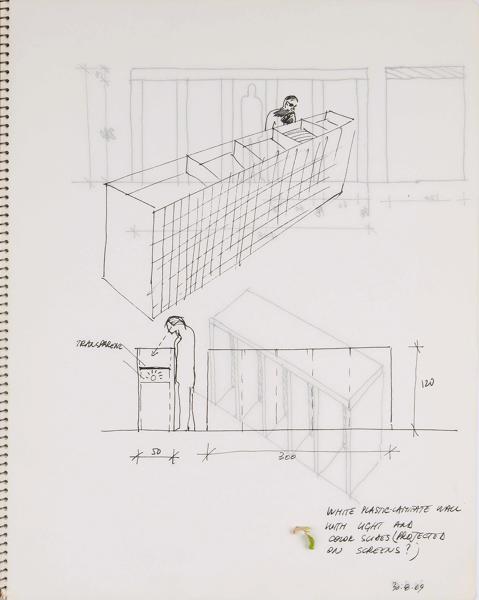 TRANSPARENT
120
50
300
WHITE PLASTIC-LAMINATE WALL
WITH LIGHT AND
COLOR SLIDES (PROJECTED
ON SCREENS?)